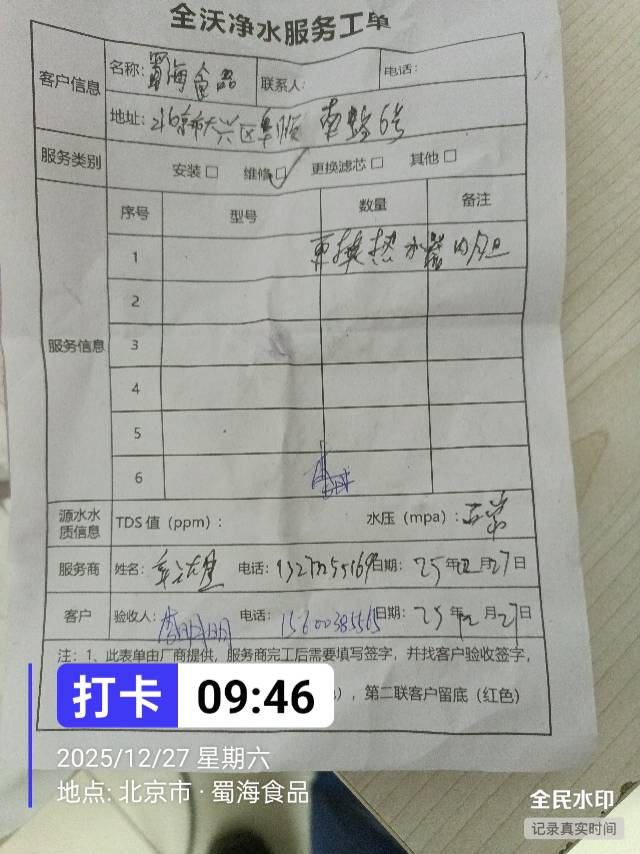 全沃净水服务工单
客户信息
名称: 蜀海食品 联系人: 电话:
地址: 北京市大兴区 6号
服务类别 安装□ 维修☑ 更换滤芯□ 其他□
服务信息
序号 型号 数量 备注
1 更换热水器内胆
2
3
4
5
6
源水水质信息 TDS 值（ppm）: 水压（mpa）: 正常
服务商 姓名: 电话: 日期: 25年12月27日
客户 验收人: 李明明 电话: 日期: 25年12月27日
注: 1、此表单由厂商提供，服务商完工后需要填写签字，并找客户验收签字，
），第二联客户留底（红色）
打卡 09:46
2025/12/27 星期六
地点: 北京市 · 蜀海食品
全民水印
记录真实时间